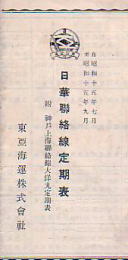 自昭和十五年七月
至昭和十五年九月
日華聯絡線定期表
附 神戸上海聯絡線大洋丸定期表
東亞海運株式會社